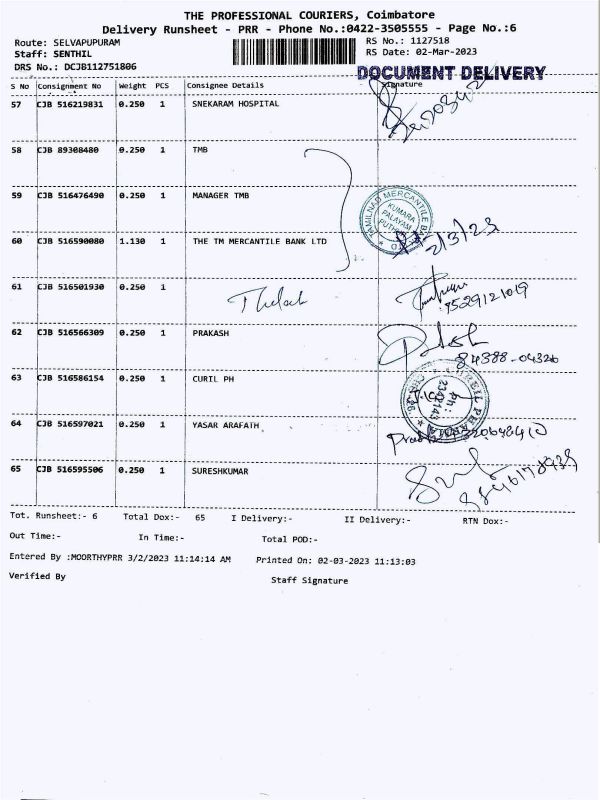 THE PROFESSIONAL COURIERS, Coimbatore
Delivery Runsheet - PRR - Phone No.:0422-3505555 - Page No.:6
Route: SELVAPUPURAM
RS No.: 1127518
Staff: SENTHIL
RS Date: 02-Mar-2023
DRS No.: DCJB112751806
DOCUMENT DELIVERY
S No Consignment No Weight PCS Consignee Details Signature
57 CJB 516219831 0.250 1 SNEKARAM HOSPITAL
58 CJB 89308480 0.250 1 TMB
59 CJB 516476490 0.250 1 MANAGER TMB
TAMILNAD MERCANTILE
KUMARA
PALAYAM
60 CJB 516590080 1.130 1 THE TM MERCANTILE BANK LTD
2/3/23
61 CJB 516501930 0.250 1
62 CJB 516566309 0.250 1 PRAKASH
84388-04320
63 CJB 516586154 0.250 1 CURIL PH
64 CJB 516597021 0.250 1 YASAR ARAFATH
65 CJB 516595506 0.250 1 SURESHKUMAR
Tot. Runsheet:- 6 Total Dox:- 65 I Delivery:- II Delivery:- RTN Dox:-
Out Time:- In Time:- Total POD:-
Entered By :MOORTHYPRR 3/2/2023 11:14:14 AM Printed On: 02-03-2023 11:13:03
Verified By Staff Signature